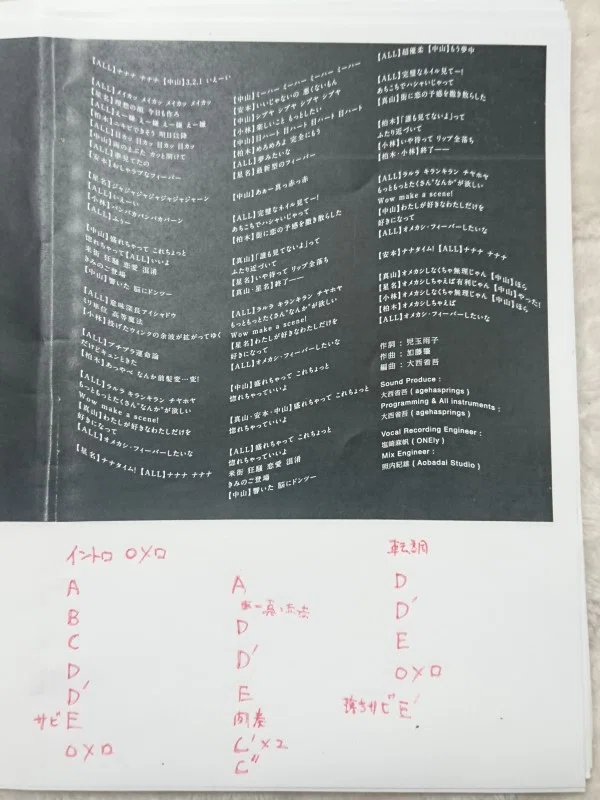 【ALL】ナナナ ナナナ 【中山】3,2,1 いぇーい
【ALL】メイカッ メイカッ メイカッ メイカッ
【星名】理想の顔 今日も作ろ
【ALL】えー線 えー線 えー線 えー線
【柏木】ニキビできそう 明日以降
【ALL】目ヂカッ 目ヂカッ 目ヂカッ
【中山】両のまぶた カッと開けて
【ALL】夢見てたの
【安本】おしゃラブなフィーバー
【星名】ジャジャジャジャジャジャジャーン
【ALL】いぇーい
【小林】パンパカパンパカパーン
【ALL】ふぅー
【中山】盛れちゃって これちょっと
惚れちゃって【ALL】いいよ
来街 狂騒 恋愛 混渚
きみのご登場
【中山】響いた 脳にドンツー
【ALL】意味深長アイシャドウ
もり率従 高等魔法
【小林】投げたウィンクの余波が拡がってゆく
【ALL】プチプラ運命論
だけどキュンときた
【柏木】あっやべ なんか前髪変…変!
【ALL】ラルラ キランキラン チヤホヤ
もっともっとたくさん“なんか”が欲しい
Wow make a scene!
【真山】わたしが好きなわたしだけを
好きになって
【ALL】オメカシ・フィーバーしたいな
【星名】ナナタイム! 【ALL】ナナナ ナナナ
【中山】ミーハー ミーハー ミーハー ミーハー
【安本】いいじゃないの 悪くないもん
【中山】シブヤ シブヤ シブヤ シブヤ
【小林】楽しいこと もっとしたい
【中山】目ハート 目ハート 目ハート 目ハート
【柏木】めろめろよ 完全にもう
【ALL】夢みたいな
【星名】最新型のフィーバー
【中山】あぁー真っ赤っ赤
【ALL】完璧なネイル見てー!
あちこちでハシャいじゃって
【柏木】街に恋の予感を撒き散らした
【真山】「誰も見てないよ」って
ふたり近づいて
【星名】いや待って リップ全落ち
【真山・星名】終了──
【ALL】ラルラ キランキラン チヤホヤ
もっともっとたくさん“なんか”が欲しい
Wow make a scene!
【星名】わたしが好きなわたしだけを
好きになって
【ALL】オメカシ・フィーバーしたいな
【中山】盛れちゃって これちょっと
惚れちゃっていいよ
【真山・安本・中山】盛れちゃって これちょっと
惚れちゃっていいよ
【ALL】盛れちゃって これちょっと
惚れちゃっていいよ
来街 狂騒 恋愛 混渚
きみのご登場
【中山】響いた 脳にドンツー
【ALL】超優柔 【中山】もう夢中
【ALL】完璧なネイル見てー!
あちこちでハシャいじゃって
【真山】街に恋の予感を撒き散らした
【柏木】「誰も見てないよ」って
ふたり近づいて
【小林】いや待って リップ全落ち
【柏木・小林】終了──
【ALL】ラルラ キランキラン チヤホヤ
もっともっとたくさん“なんか”が欲しい
Wow make a scene!
【中山】わたしが好きなわたしだけを
好きになって
【ALL】オメカシ・フィーバーしたいな
【安本】ナナタイム! 【ALL】ナナナ ナナナ
【真山】オメカシしなくちゃ無理じゃん 【中山】ほら
【星名】オメカシしちゃえば有利じゃん 【中山】やった!
【小林】オメカシしなくちゃ無理じゃん 【中山】ほら
【柏木】オメカシしちゃえば
【ALL】オメカシ・フィーバーしたいな
作詞 : 児玉雨子
作曲 : 加藤肇
編曲 : 大西省吾
Sound Produce :
大西省吾 ( agehasprings )
Programming & All instruments :
大西省吾 ( agehasprings )
Vocal Recording Engineer :
塩崎麻帆 ( ONEly )
Mix Engineer :
照内紀雄 ( Aobadai Studio )
イントロ ○メロ
A
B
C
D
D'
サビ E
○メロ
A
D
D'
E
間奏
C' ×2
C''
転調
D
D'
E
○メロ
落ちサビ E'